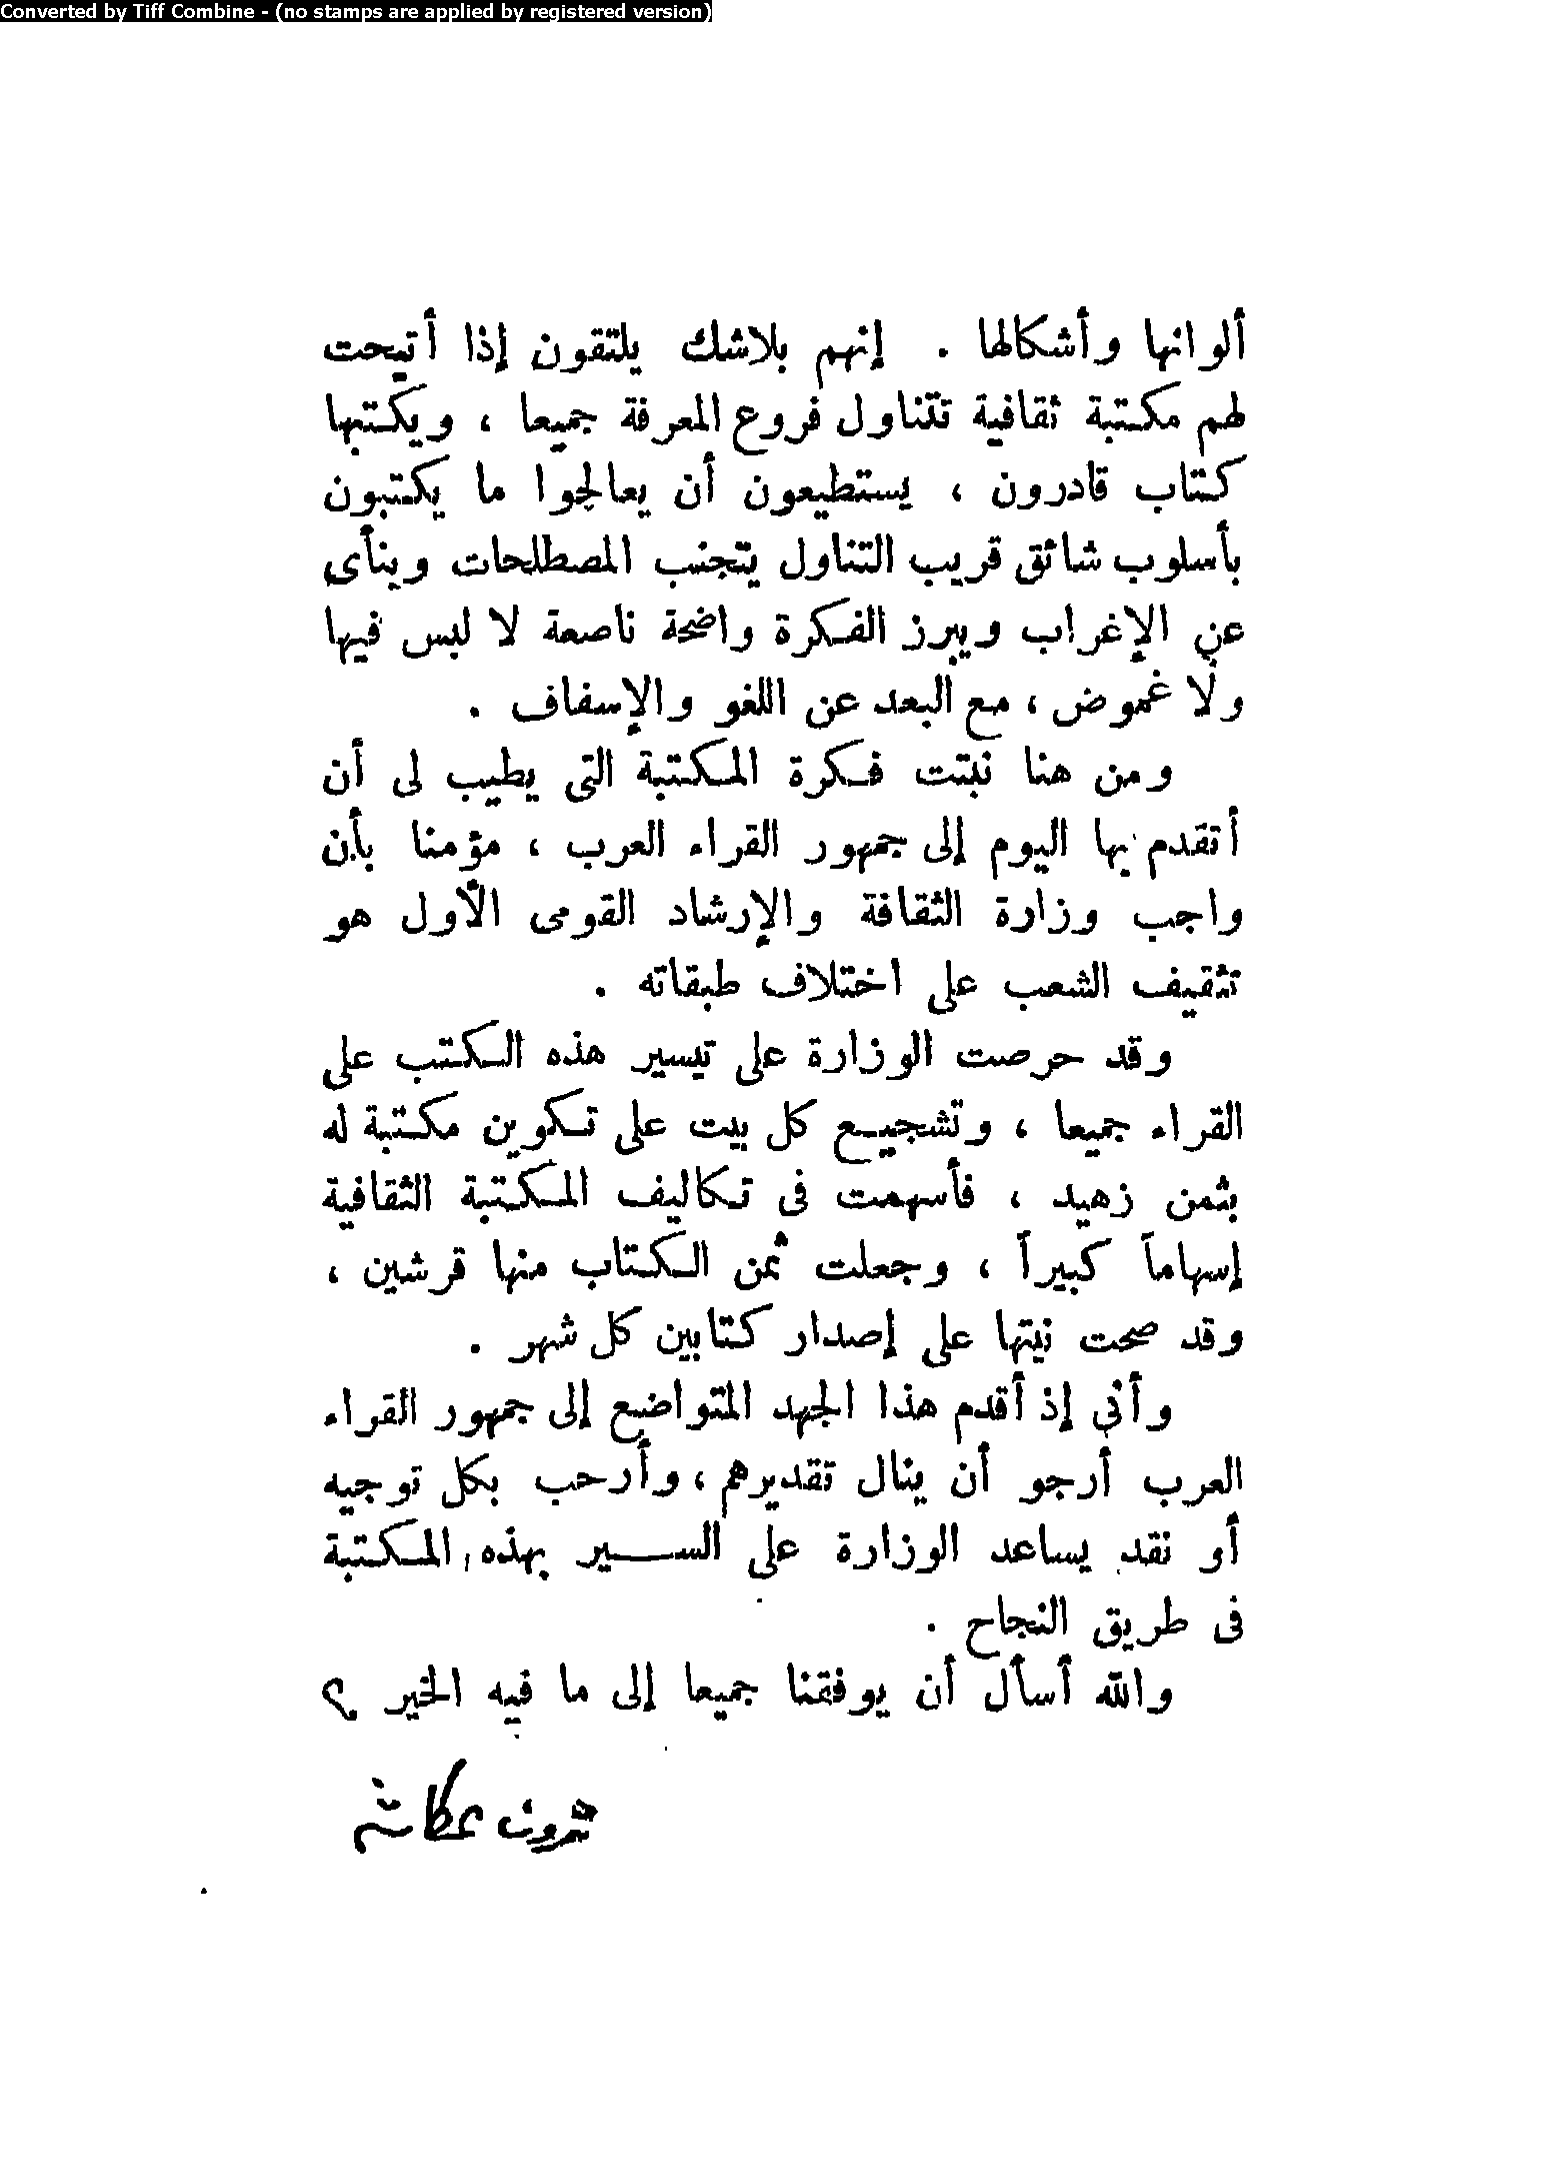 Converted by Tiff Combine - (no stamps are applied by registered version)
ألوانها وأشكالها . إنهم بلاشك يلتقون إذا أتيحت
لهم مكتبة ثقافية تتناول فروع المعرفة جميعا ، ويكتبها
كتاب قادرون ، يستطيعون أن يعالجوا ما يكتبون
بأسلوب شائق قريب التناول يتجنب المصطلحات وينأى
عن الإغراب ويبرز الفكرة واضحة ناصعة لا لبس فيها
ولا غموض ، مع البعد عن اللغو والإسفاف .
ومن هنا نبتت فكرة المكتبة التى يطيب لى أن
أتقدم بها اليوم إلى جمهور القراء العرب ، مؤمنا بأن
واجب وزارة الثقافة والإرشاد القومى الأول هو
تثقيف الشعب على اختلاف طبقاته .
وقد حرصت الوزارة على تيسير هذه الكتب على
القراء جميعا ، وتشجيع كل بيت على تكوين مكتبة له
بثمن زهيد ، فأسهمت فى تكاليف المكتبة الثقافية
إسهاماً كبيراً ، وجعلت ثمن الكتاب منها قرشين ،
وقد صحت نيتها على إصدار كتابين كل شهر .
وأنى إذ أقدم هذا الجهد المتواضع إلى جمهور القراء
العرب أرجو أن ينال تقديرهم ، وأرحب بكل توجيه
أو نقد يساعد الوزارة على السير بهذه المكتبة
فى طريق النجاح .
والله أسأل أن يوفقنا جميعا إلى ما فيه الخير ؟
ثروت عكاشه